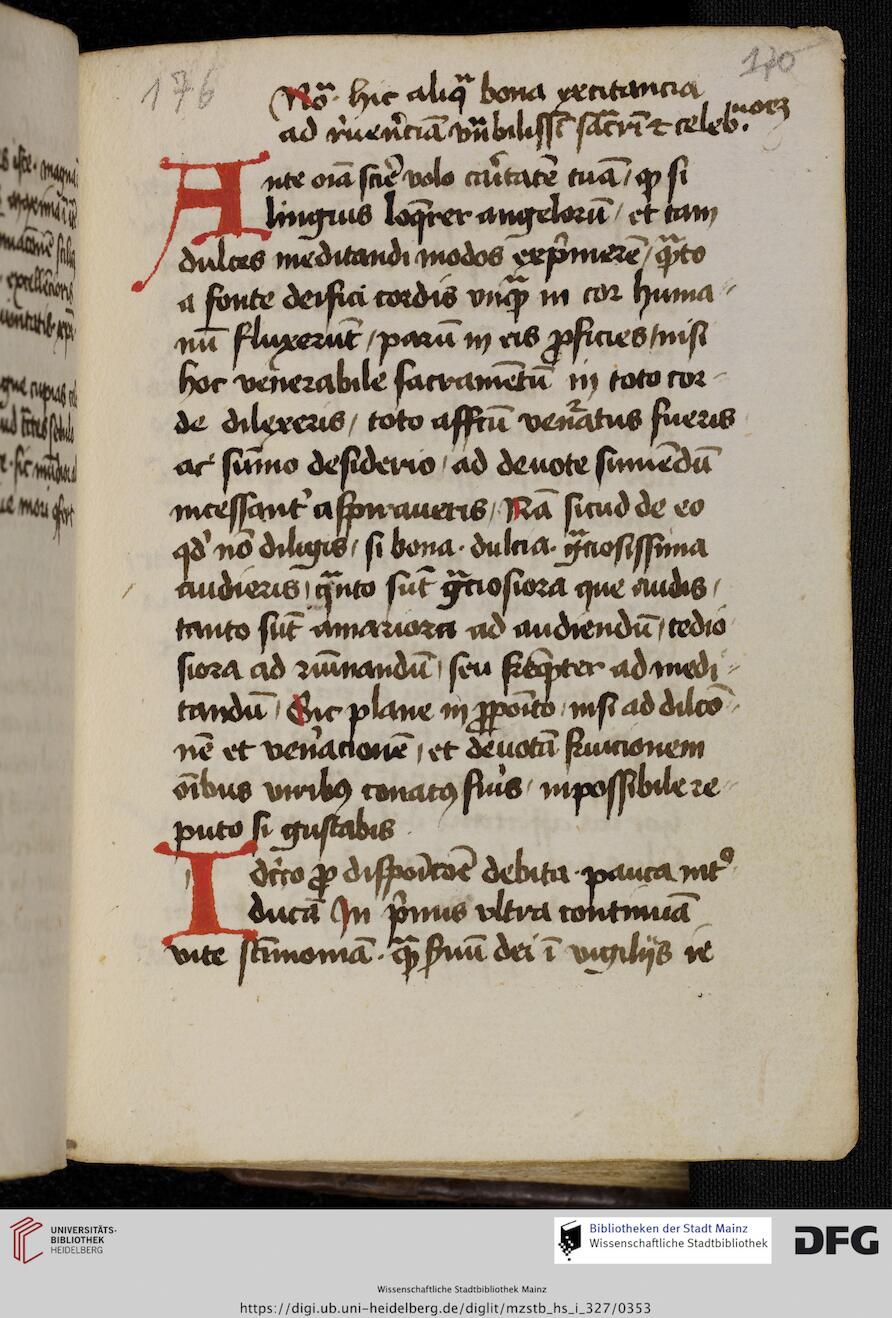 176
170
No͞ᵃ. hic aliqᵃ̄ bona excitancia
ad r̓uenc̓iā vn̄bilissī sac̄ri ⁊ celeb.
Ante oīa scire volo car̓itatē tuā / ꝙ si
linguis loq̄rer angelorū / et tam
dulces meditandi modos exp̓merē / qᵃ̄to
a fonte deifici cordis vnqᵃ̄ in cor huma-
nū fluxerūt / parū in eis ꝓficies / nisi
hoc venerabile sacramētū in toto cor-
de dilexeris / toto affcū ven̓atus fueris
ac sūmo desiderio / ad deuote sumendū
incessant̓ aspiraueris / Nā sicud de eo
qd̓ nō diligis / si bona . dulcia . gᵃ̄ciosissima
audieris / qᵃ̄nto sūt gᵃ̄ciosiora que audis /
tanto sūt amariora ad audiendū / tedio
siora ad rūinandū / seu ad medi-
tandū / Sic plane in ꝓpoīto / nisi ad dilcō-
nē et ven̓acionē / et deuotā fruicionem
oībus viribꝰ conatꝰ fu̓is / inpossibile re-
puto si gustabis .
Idc̓co ꝓ disposicōē debita . pauca int̓
ducā In p̓mis vltra continuā
vite sc̄imoniā . qᵃ̄ s̓uū dei ī vigilijs ie
UNIVERSITÄTS-
BIBLIOTHEK
HEIDELBERG
Bibliotheken der Stadt Mainz
Wissenschaftliche Stadtbibliothek
DFG
Wissenschaftliche Stadtbibliothek Mainz
https://digi.ub.uni-heidelberg.de/diglit/mzstb_hs_i_327/0353